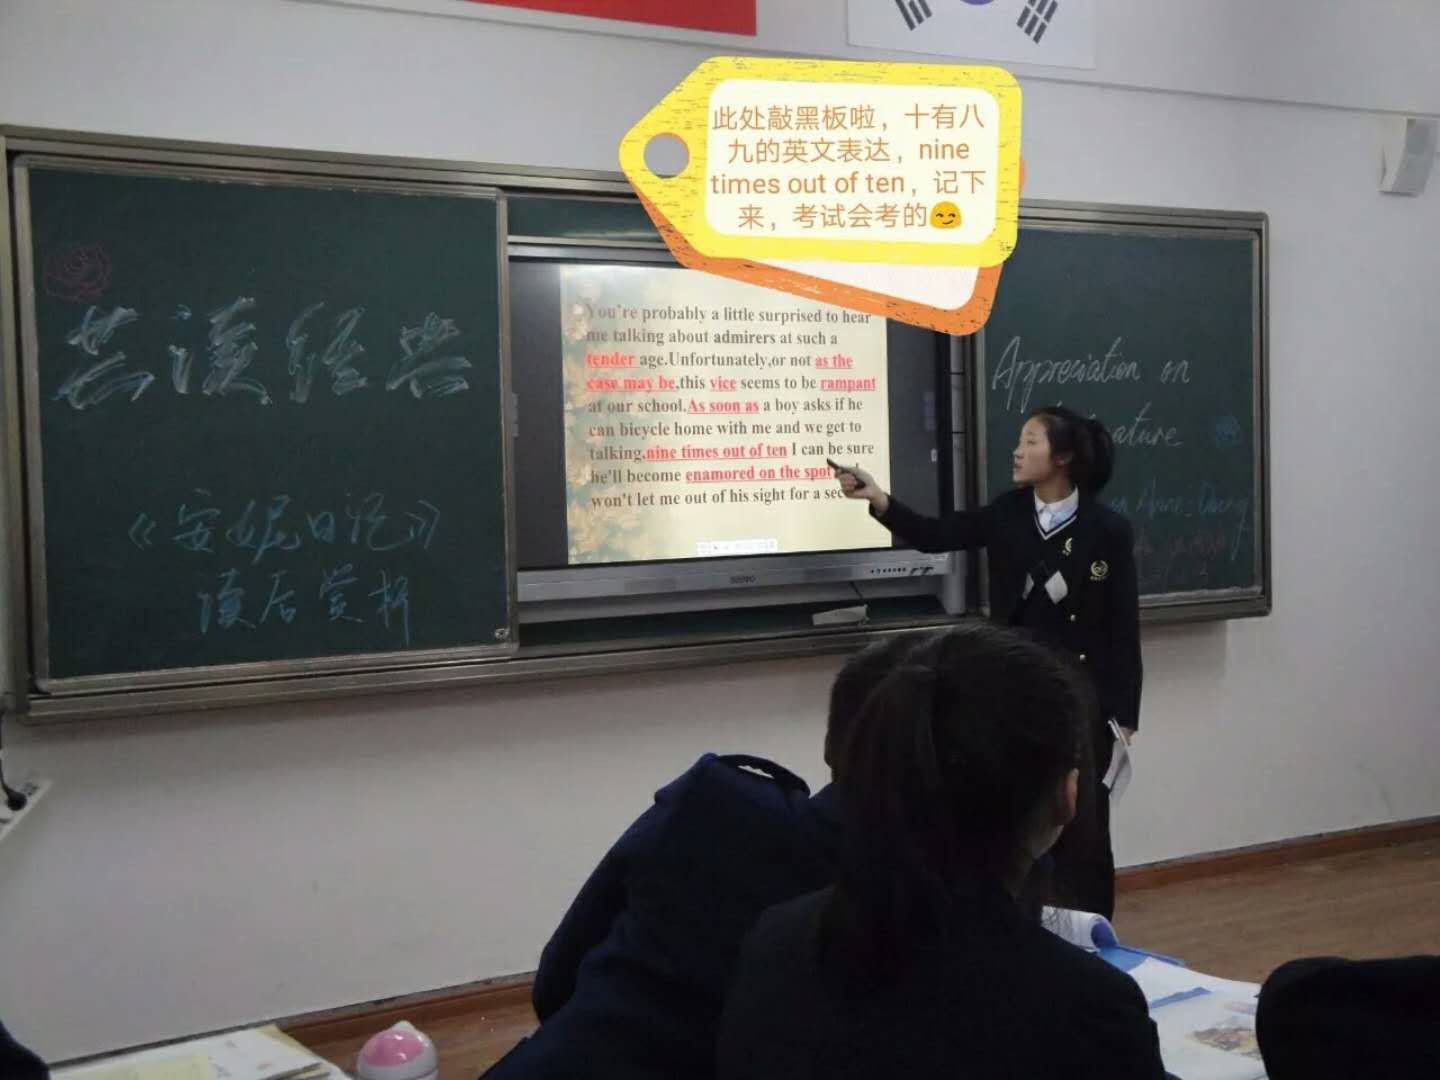 此处敲黑板啦，十有八
九的英文表达，nine
times out of ten，记下
来，考试会考的😏
共读经典
《安妮日记》
读后赏析
You're probably a little surprised to hear
me talking about admirers at such a
tender age.Unfortunately,or not as the
case may be,this vice seems to be rampant
at our school.As soon as a boy asks if he
can bicycle home with me and we get to
talking,nine times out of ten I can be sure
he'll become enamored on the spot
won't let me out of his sight for a
Appreciation on